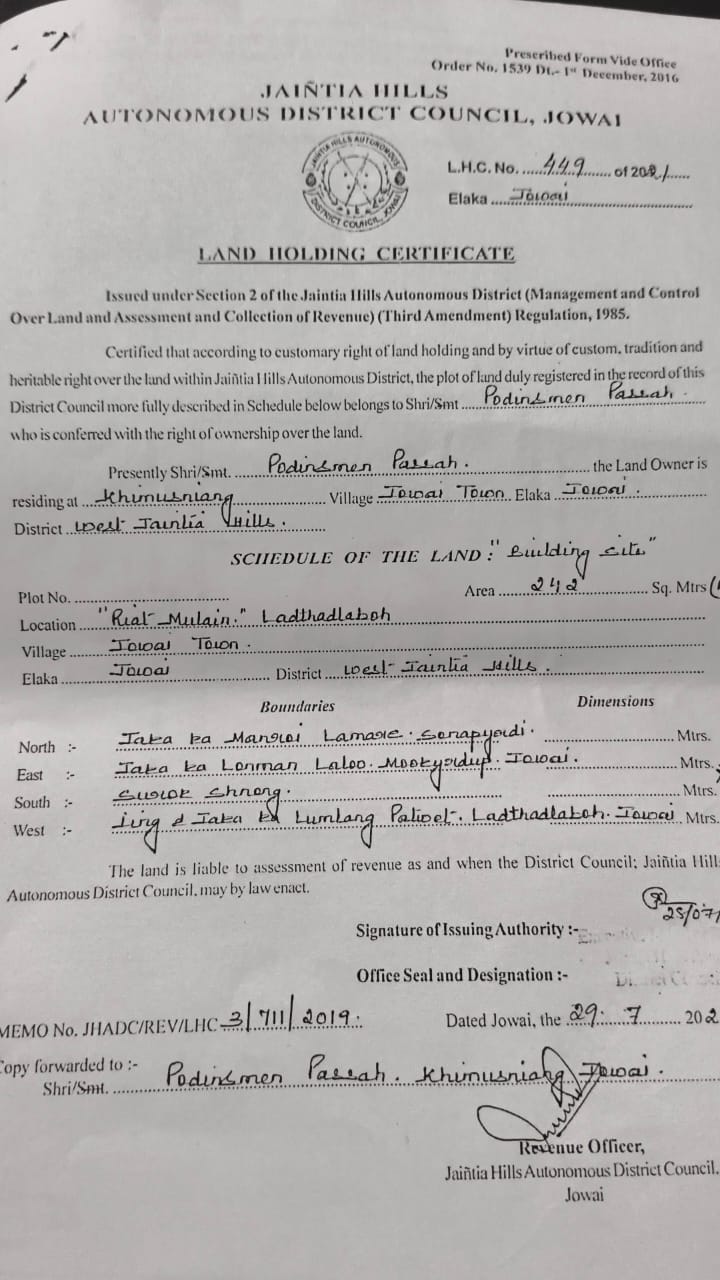 Prescribed Form Vide Office
Order No. 1539 Dt.- 1st December, 2016
JAIÑTIA HILLS
AUTONOMOUS DISTRICT COUNCIL, JOWAI
JAIÑTIA HILLS AUTONOMOUS
DISTRICT COUNCIL, JOWAI
L.H.C. No. 449 of 2021
Elaka Jowai
LAND HOLDING CERTIFICATE
Issued under Section 2 of the Jaintia Hills Autonomous District (Management and Control
Over Land and Assessment and Collection of Revenue) (Third Amendment) Regulation, 1985.
Certified that according to customary right of land holding and by virtue of custom, tradition and
heritable right over the land within Jaiñtia Hills Autonomous District, the plot of land duly registered in the record of this
District Council more fully described in Schedule below belongs to Shri/Smt Podinsmen Passah.
who is conferred with the right of ownership over the land.
Presently Shri/Smt. Podinsmen Passah. the Land Owner is
residing at Khimusniang Village Jowai Town Elaka Jowai.
District West Jaintia Hills.
SCHEDULE OF THE LAND : "Building Site"
Plot No. Area 242 Sq. Mtrs (
Location "Riat-Mulain." Ladthadlaboh
Village Jowai Town.
Elaka Jowai District West Jaintia Hills.
Boundaries Dimensions
North :- Jaka ka Lamare. Mtrs.
East :- Jaka ka Lonman Laloo. Jowai. Mtrs.
South :- Surok Shnong. Mtrs.
West :- Iing & Jaka ka Lumlang Ladthadlaboh. Jowai Mtrs.
The land is liable to assessment of revenue as and when the District Council; Jaiñtia Hill
Autonomous District Council, may by law enact.
25/07/
Signature of Issuing Authority :-
Office Seal and Designation :-
MEMO No. JHADC/REV/LHC 3/711/2019. Dated Jowai, the 29. 7 202
Copy forwarded to :-
Shri/Smt. Podinsmen Passah. Khimusniang Jowai.
Revenue Officer,
Jaiñtia Hills Autonomous District Council.
Jowai